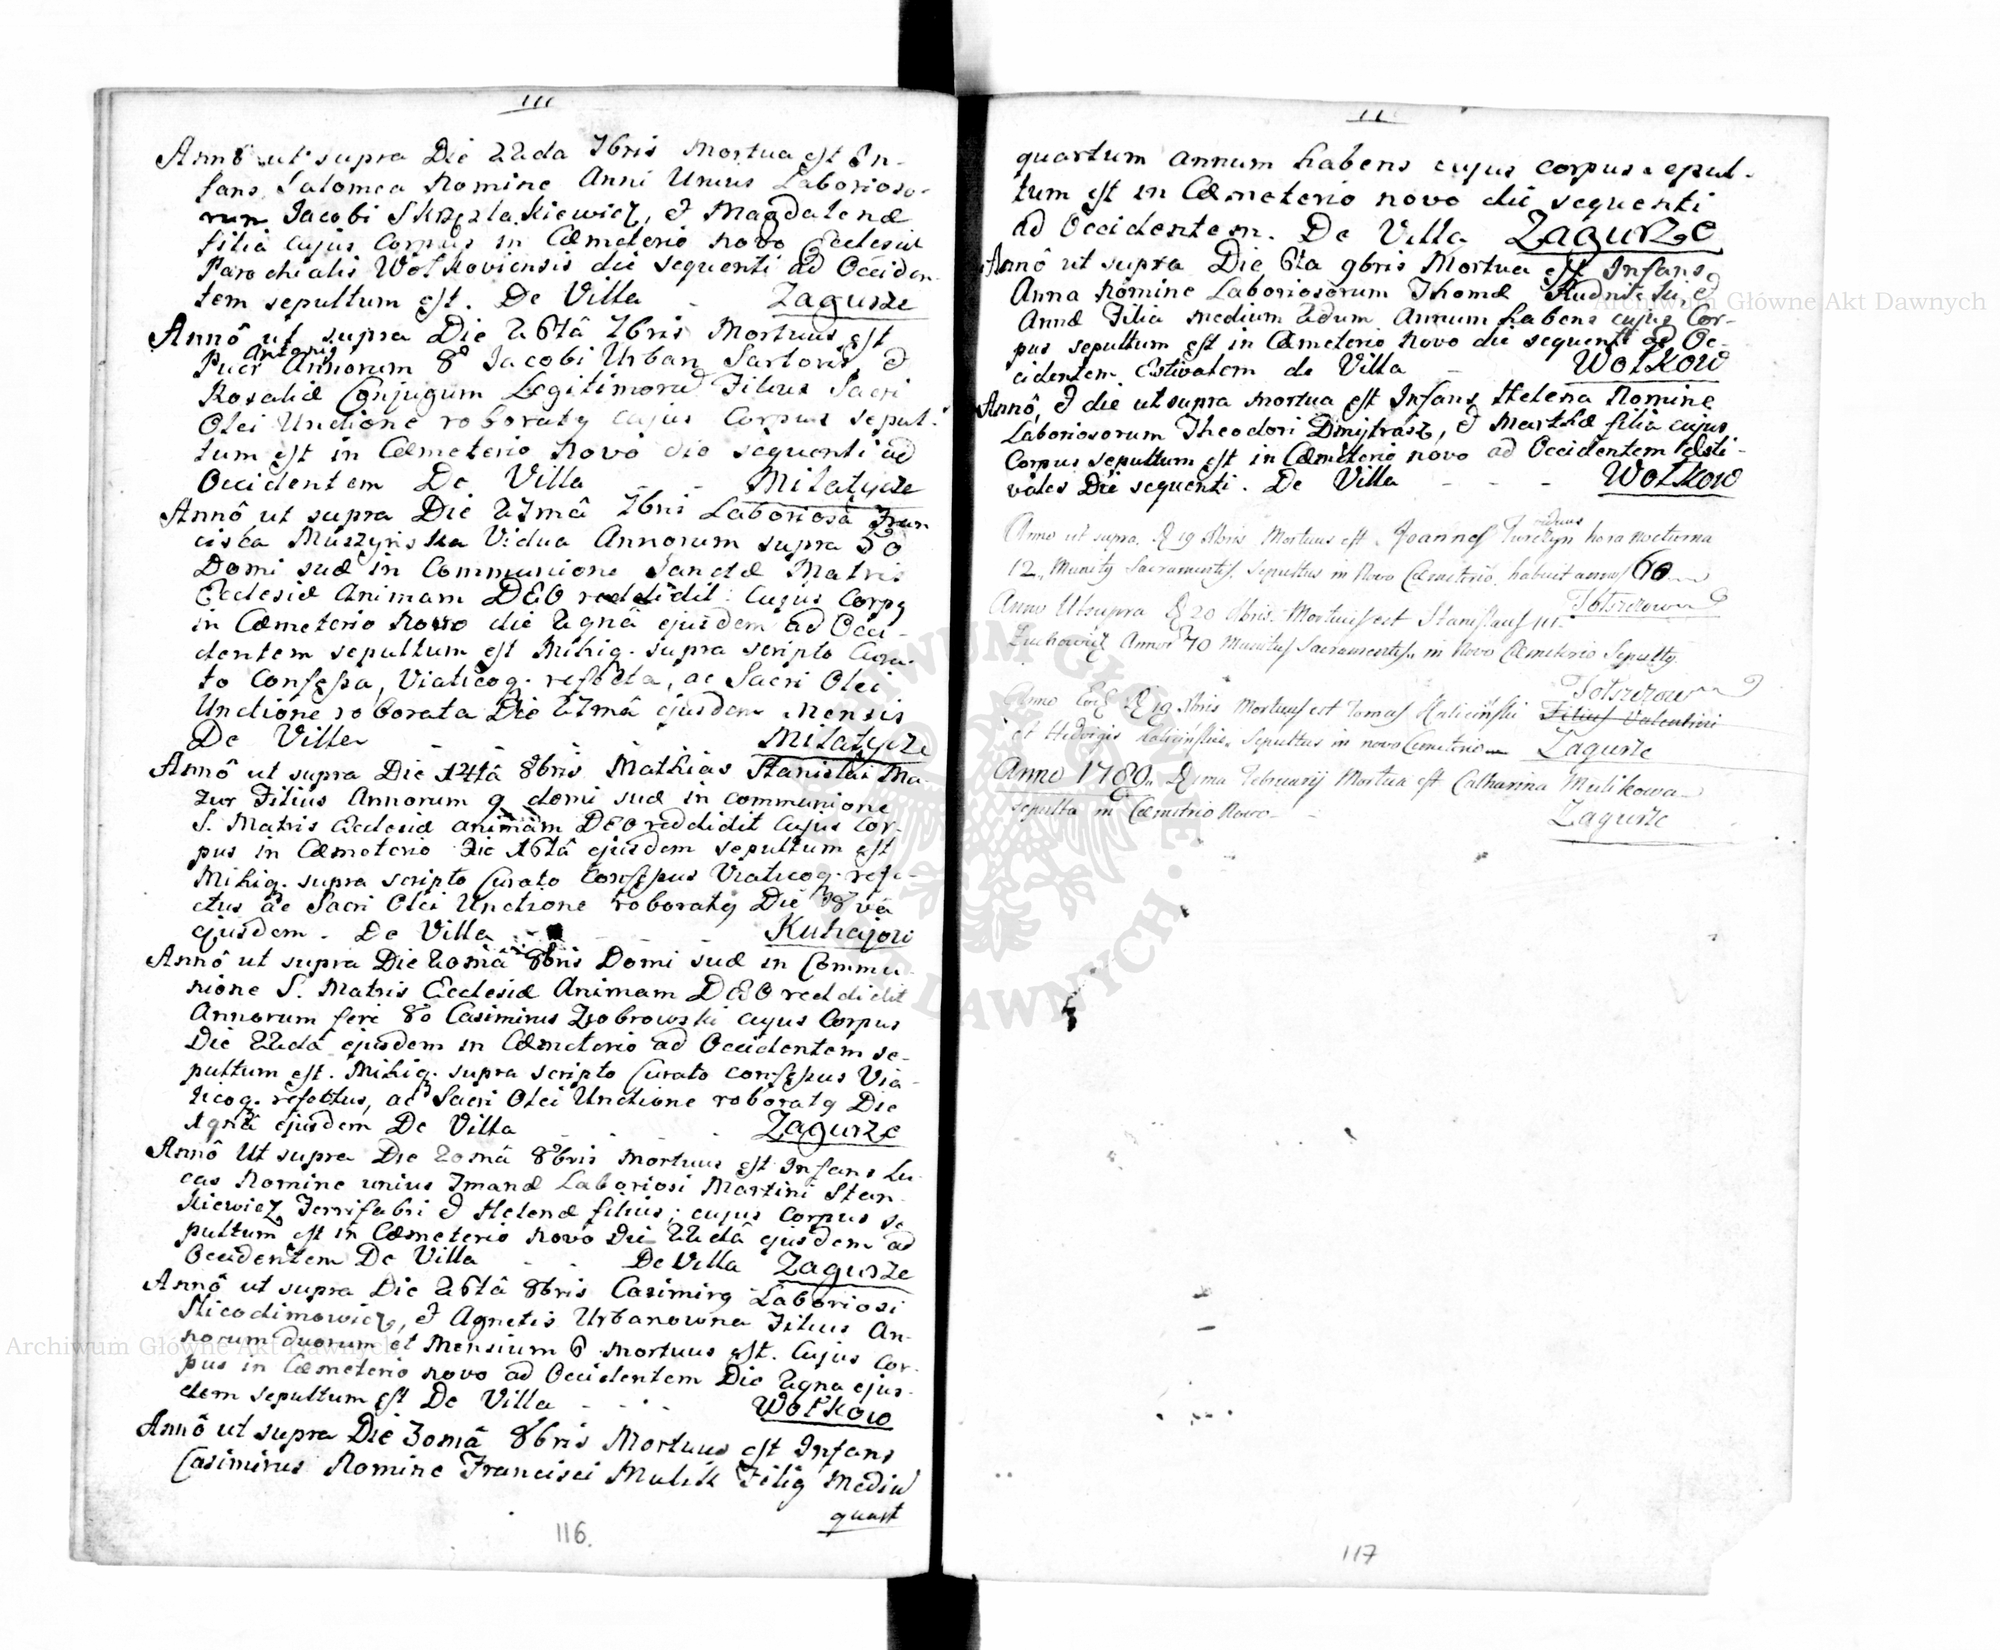 111
Annô ut supra Die 22da 7bris Mortua est In-
fans Salomea Nomine Anni Unius Laborioso-
rum Jacobi Skrzczlakiewicz, & Magdalenæ
filia cujus Corpus in Cæmeterio novo Ecclesiæ
Parochialis Wołkoviensis die sequenti ad Occiden-
tem sepultum est. De Villa - Zagurze
Annô ut supra Die 26tâ 7bris Mortuus est
Antonius
Puer Annorum 8 Jacobi Urban Sartoris, &
Rosaliæ Conjugum Legitimorū Filius Sacri
Olei Unctione roboratq cujus Corpus sepul-
tum est in Cæmeterio Novo die sequenti ad
Occidentem De Villa - - Milatycze
Annô ut supra Die 27mâ 7bris Laboriosa Fran
cisca Muszyńska Vidua Annorum supra 50
Domi suæ in Communione Sanctæ Matris
Ecclesiæ Animam DEO reddidit: Cujus Corpq
in Cæmeterio Novo die 29nâ ejusdem ad Occi-
dentem sepultum est Mihiq. supra scripto Cura-
to Confessa, Viaticoq. refecta, ac Sacri Olei
Unctione roborata Die 27mâ ejusdem Mensis
De Villa - - - - Milatycze
Annô ut supra Die 14tâ 8bris Mathias Stanislai Ma-
zur Filius Annorum 9 domi suæ in communione
S. Matris Ecclesiæ animam DEO reddidit Cujus Cor-
pus in Cæmeterio Die 16tâ ejusdem sepultum est
Mihiq. supra scripto Curato Confessus Viaticoq. refe-
ctus ac Sacri Olei Unctione roboratq Die 8va
ejusdem. De Villa - - - Kuhajow
Annô ut supra Die 20mâ 8bris Domi suæ in Commu-
nione S. Matris Ecclesiæ Animam DEO reddidit
Annorum fere 80 Casimirus Zrobrowski cujus Corpus
Die 22dâ ejusdem in Cæmeterio ad Occidentem se-
pultum est. Mihiq. supra scripto Curato confessus Via-
ticoq. refectus, ac Sacri Olei Unctione roboratq Die
19nâ ejusdem De Villa - - - Zagurze
Annô Ut supra Die 20mâ 8bris Mortuus est Infans Lu-
cas Nomine unius 7manæ Laboriosi Martini Stan-
kiewicz Ferrifabri & Helenæ filius; cujus Corpus se
pultum est in Cæmeterio novo Die 22dâ ejusdem ad
Occidentem De Villa - - De Villa Zagurze
Annô ut supra Die 26tâ 8bris Casimirq Laboriosi
Nicodimowicz, & Agnetis Urbanowna Filius An-
norum duorum et Mensium 6 mortuus est. Cujus Cor-
pus in Cæmeterio novo ad Occidentem Die 29na ejus-
dem sepultum est De Villa - - - Wołkow
Annô ut supra Die 30mâ 8bris Mortuus est Infans
Casimirus Nomine Francisci Mulik Filiq mediū
quart
116.
11
quartum annum habens cujus corpus sepul-
tum est in Cæmeterio novo die sequenti
ad Occidentem. De Villa Zagurze
Annô ut supra Die 6ta 9bris Mortua est Infans
Anna Nomine Laboriosorum Thomæ
Annæ Filia medium 2dum Annum habens cujus Cor-
pus sepultum est in Cæmeterio Novo die sequenti ad Oc-
cidentem Estivalem de Villa - Wołkow
Annô, & die ut supra mortua est Infans Helena Nomine
Laboriosorum Theodori Dmytrasz, & Marthæ filia cujus
Corpus sepultum est in Cæmeterio novo ad Occidentem Æsti-
vales Die sequenti. De Villa - - - Wołkow
Anno ut supra. D 19 Xbris Mortuus est Joannes Tureczyn viduus hora nocturna
12. Munitq Sacramentis. Sepultus in Novo Cæmeterio, habuit annos 60
Anno Ut supra D 20 Xbris. Mortuus est Stanislaus Tołszczow
Zuchowicz Annor 70 Munitus Sacramentis. in Novo Cæmeterio Sepultq.
Tołszczow
Anno Eod D 19 Xbris Mortuus est Tomas Kaliciński Filius Valentini
et Hedvigis Kalicińskie. Sepultus in novo Cemeterio Zagurze
Anno 1789. D 2ma Februarij Mortua est Catharina Mulikowa
sepulta in Cæmetrio Novo - - Zagurze
117
Archiwum Główne Akt Dawnych
Archiwum Główne Akt Dawnych
ARCHIWUM GŁÓWNE AKT DAWNYCH